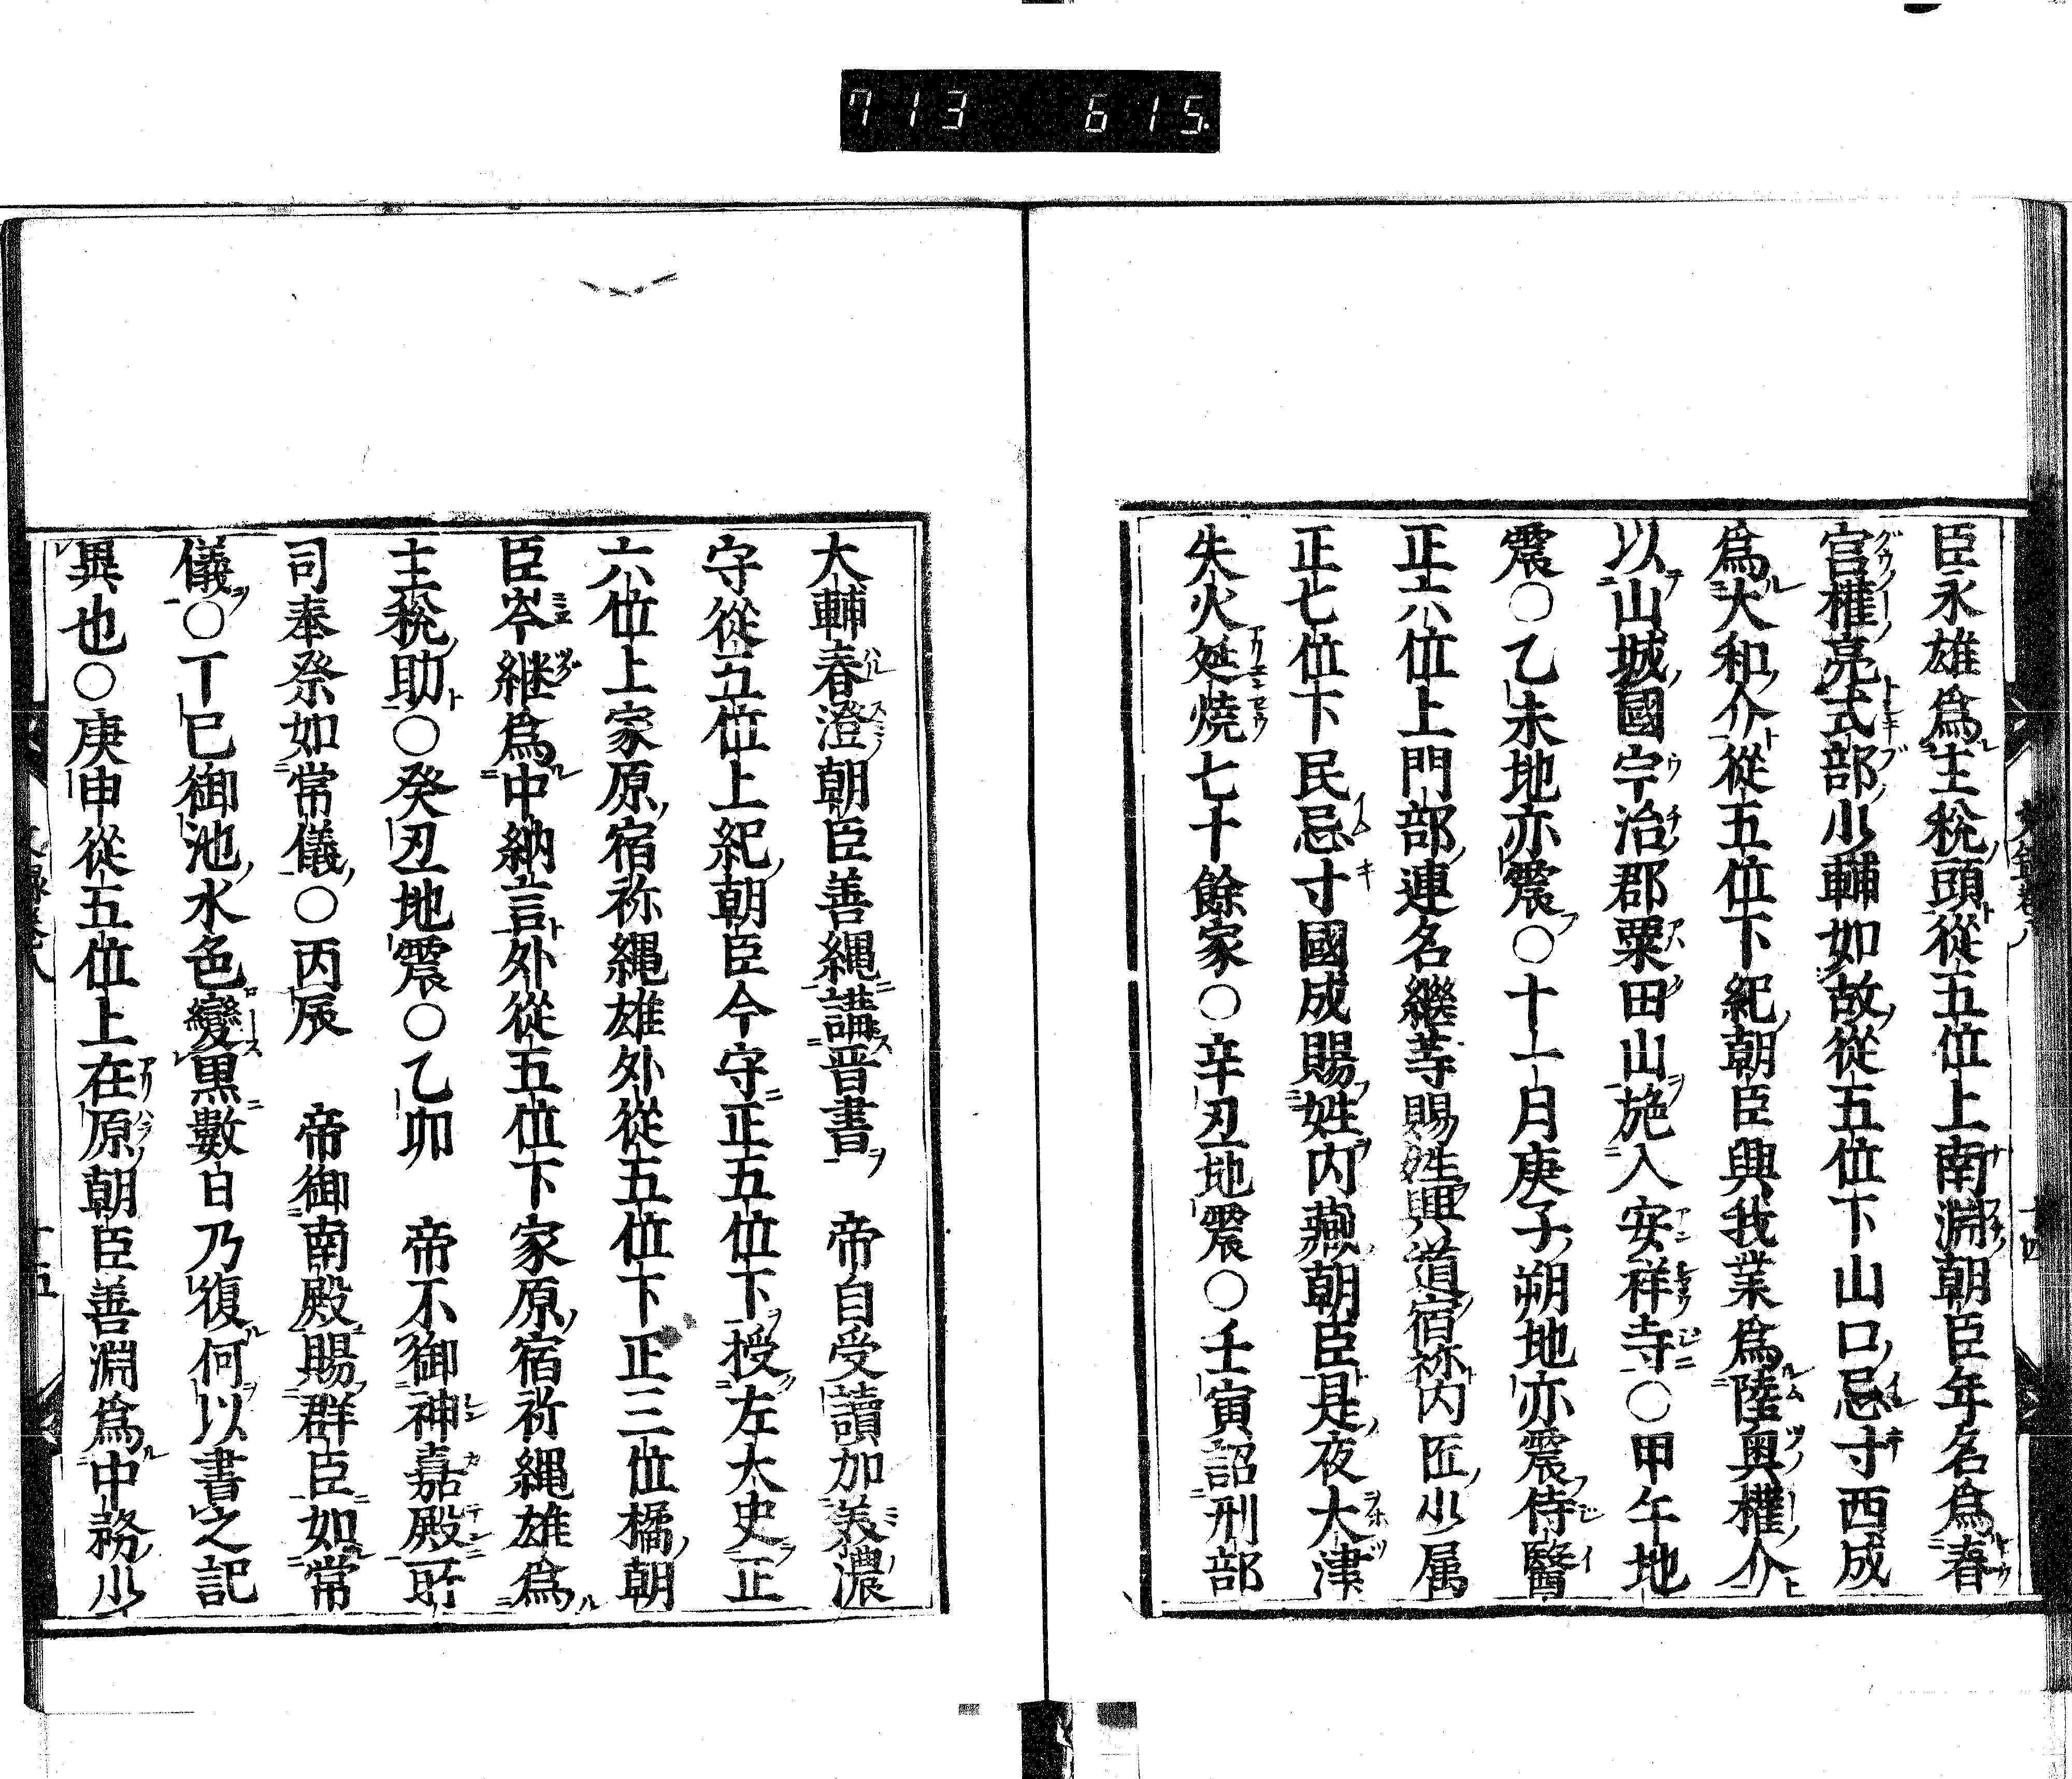 713 615.
臣永雄爲主稅頭從五位上南淵朝臣年名爲春
宮權亮式部少輔如故從五位下山口忌寸西成
爲大和介從五位下紀朝臣興我業爲陸奥權介
以山城國宇治郡粟田山施入安祥寺○甲午地
震○乙未地亦震○十一月庚子朔地亦震侍醫
正六位上門部連名繼等賜姓興道宿祢内匠少属
正七位下民忌寸國成賜姓内蔵朝臣是夜大津
失火延燒七十餘家○辛丑地震○壬寅詔刑部
大輔春澄朝臣善縄講晋書　帝自受讀加美濃
守從五位上紀朝臣今守正五位下授左大史正
六位上家原宿祢縄雄外從五位下正三位橘朝
臣岑継爲中納言外從五位下家原宿祢縄雄爲
主稅助○癸丑地震○乙卯　帝不御神嘉殿所
司奉祭如常儀○丙辰　帝御南殿賜群臣如常
儀○丁巳御池水色變黒數日乃復何以書之記
異也○庚申從五位上在原朝臣善淵爲中務少